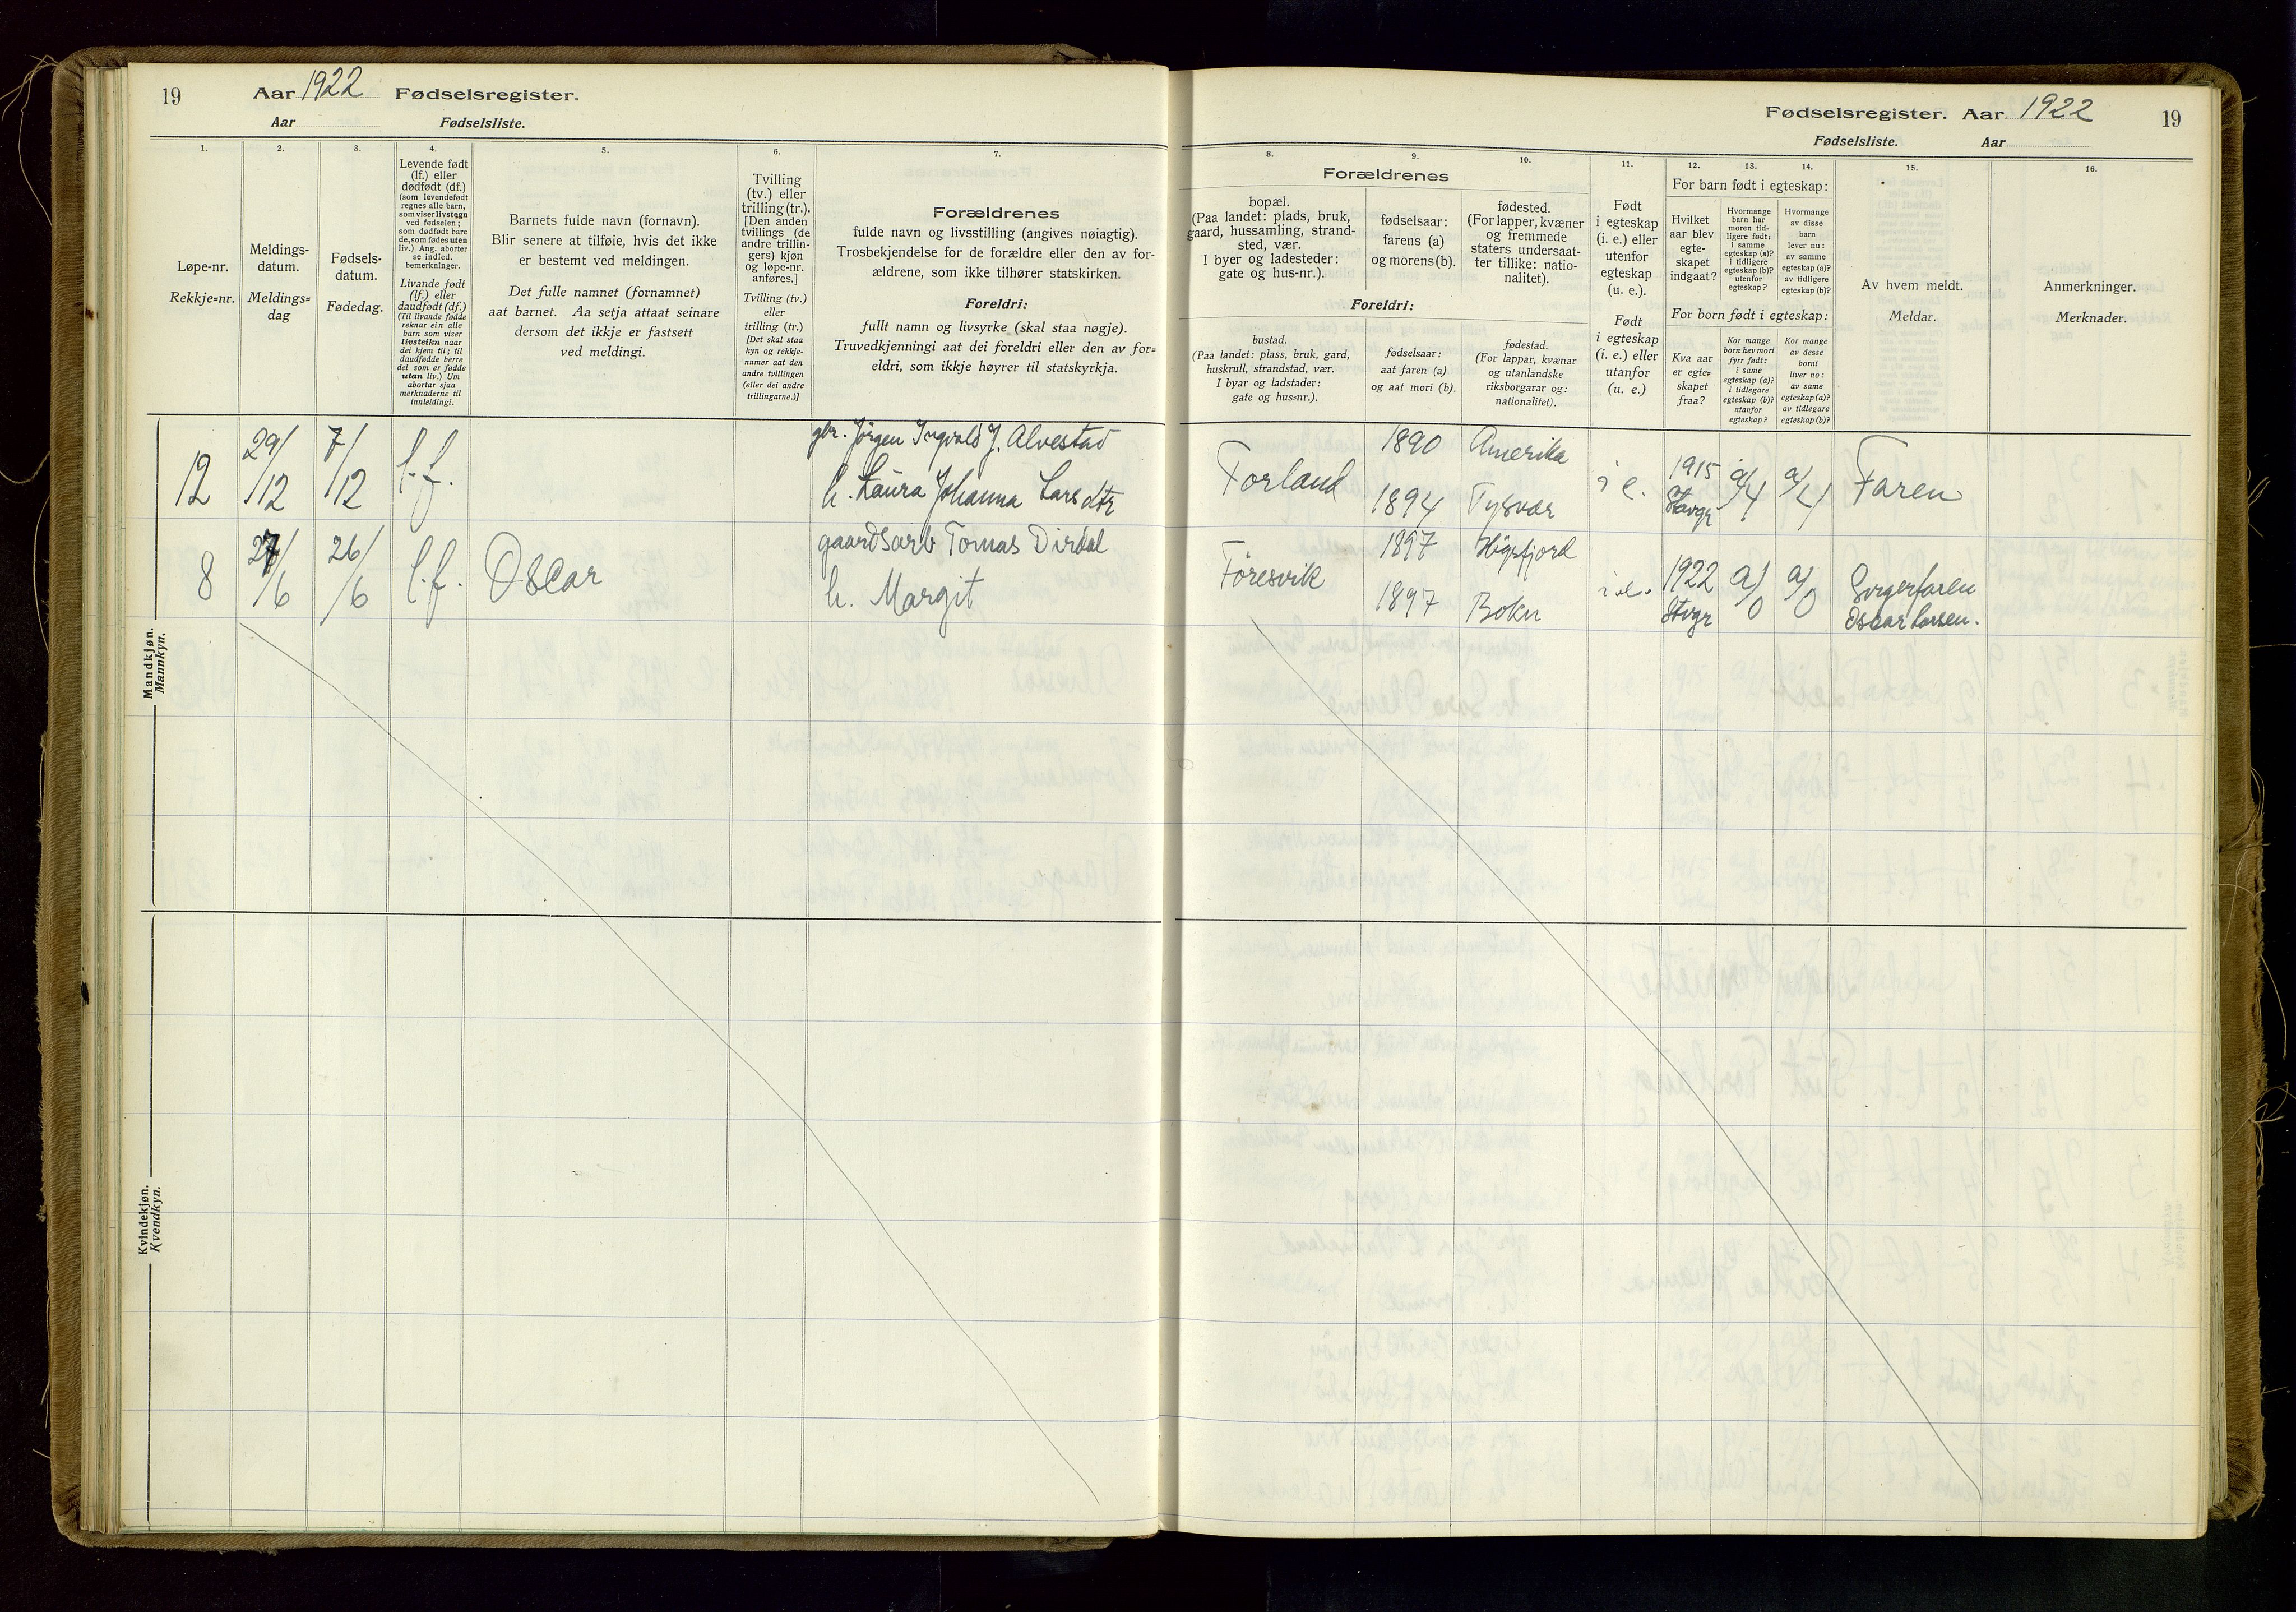 19
Aar 1922 Fødselsregister.
Aar Fødselsliste.
1.
2.
3.
4.
5.
6.
7.
Løpe-nr.
Rekkje=nr.
Meldings-
datum.
Meldings=
dag
Fødsels-
datum.
Fødedag.
Levende født
(lf.) eller
dødfødt (df.)
(som levendefødt
regnes alle barn,
som viser livstegn
ved fødselen;
som dødfødt bare
de, som fødes uten
liv.) Ang. aborter
se indled.
bemerkninger.
Livande født
(lf.) eller
daudfødt (df.)
(Til livande fødde
reknar ein alle
barn som viser
livsteikn naar
dei kjem til; til
daudfødde berre
dei som er fødde
utan liv.) Um
abortar sjaa
merknaderne til
innleidingi.
Barnets fulde navn (fornavn).
Blir senere at tilføie, hvis det ikke
er bestemt ved meldingen.
Det fulle namnet (fornamnet)
aat barnet. Aa setja attaat seinare
dersom det ikkje er fastsett
ved meldingi.
Tvilling
(tv.) eller
trilling (tr.).
[Den anden
tvillings (de
andre trillin-
gers) kjøn
og løpe-nr.
anføres.]
Tvilling (tv.)
eller
trilling (tr.)
[Det skal staa
kyn og rekkje-
numer aat den
andre tvillingen
(eller dei andre
trillingarne.)]
Forældrenes
fulde navn og livsstilling (angives nøiagtig).
Trosbekjendelse for de forældre eller den av for-
ældrene, som ikke tilhører statskirken.
Foreldri:
fullt namn og livsyrke (skal staa nøgje).
Truvedkjenningi aat dei foreldri eller den av for=
eldri, som ikkje høyrer til statskyrkja.
Mandkjøn.
Mannkyn.
12
29/12
7/12
l.f.
gbr. Jørgen Ingvald J. Alvestad
h. Laura Johanna Larsdtr
8
27/6
26/6
l.f.
Oscar
gaardsarb Tomas Dirdal
h. Margit
Kvindekjøn.
Kvendkyn.
Fødselsregister. Aar 1922
19
Fødselsliste. Aar
8.
9.
10.
11.
12.
13.
14.
15.
16.
Forældrenes
bopæl.
(Paa landet: plads, bruk,
gaard, hussamling, strand-
sted, vær.
I byer og ladesteder:
gate og hus-nr.).
fødselsaar:
farens (a)
og morens (b).
fødested.
(For lapper, kvæner
og fremmede
staters undersaat-
ter tillike: natio-
nalitet).
Foreldri:
bustad.
(Paa landet: plass, bruk, gard,
huskrull, strandstad, vær.
I byar og ladstader:
gate og hus=nr.).
fødselsaar:
aat faren (a)
og aat mori (b).
fødestad.
(For lappar, kvænar
og utanlandske
riksborgarar og:
nationalitet).
Født
i egteskap
(i. e.) eller
utenfor
egteskap
(u. e.).
Født
i egteskap
(i. e.) eller
utanfor
(u. e.)
For barn født i egteskap:
Hvilket
aar blev
egte-
skapet
indgaat?
Hvormange
barn har
moren tid-
ligere født:
i samme
egteskap (a)?
i tidligere
egteskap (b)?
utenfor
egteskap?
Hvormange
av disse
barn
lever nu:
av samme
egteskap (a)?
av tidligere
egteskap (b)?
For born født i egteskap:
Kva aar
er egte=
skapet
fraa?
Kor mange
born hev mori
fyrr født:
i same
egteskap (a)?
i tidlegare
egteskap (b)?
utanfor
egteskap?
Kor mange
av desse
borni
liver no:
av same
egteskap (a)?
av tidlegare
egteskap (b)?
Av hvem meldt.
Meldar.
Anmerkninger.
Merknader.
Forland
1890
1894
Amerika
Tysvær
i e.
1915
Stavgr
a/4
a/4
Faren
Føresvik
1897
1897
Høgsfjord
Bokn
i.e.
1922
Stvgr
a/0
a/0
Svigerfaren
Oscar Larsen.